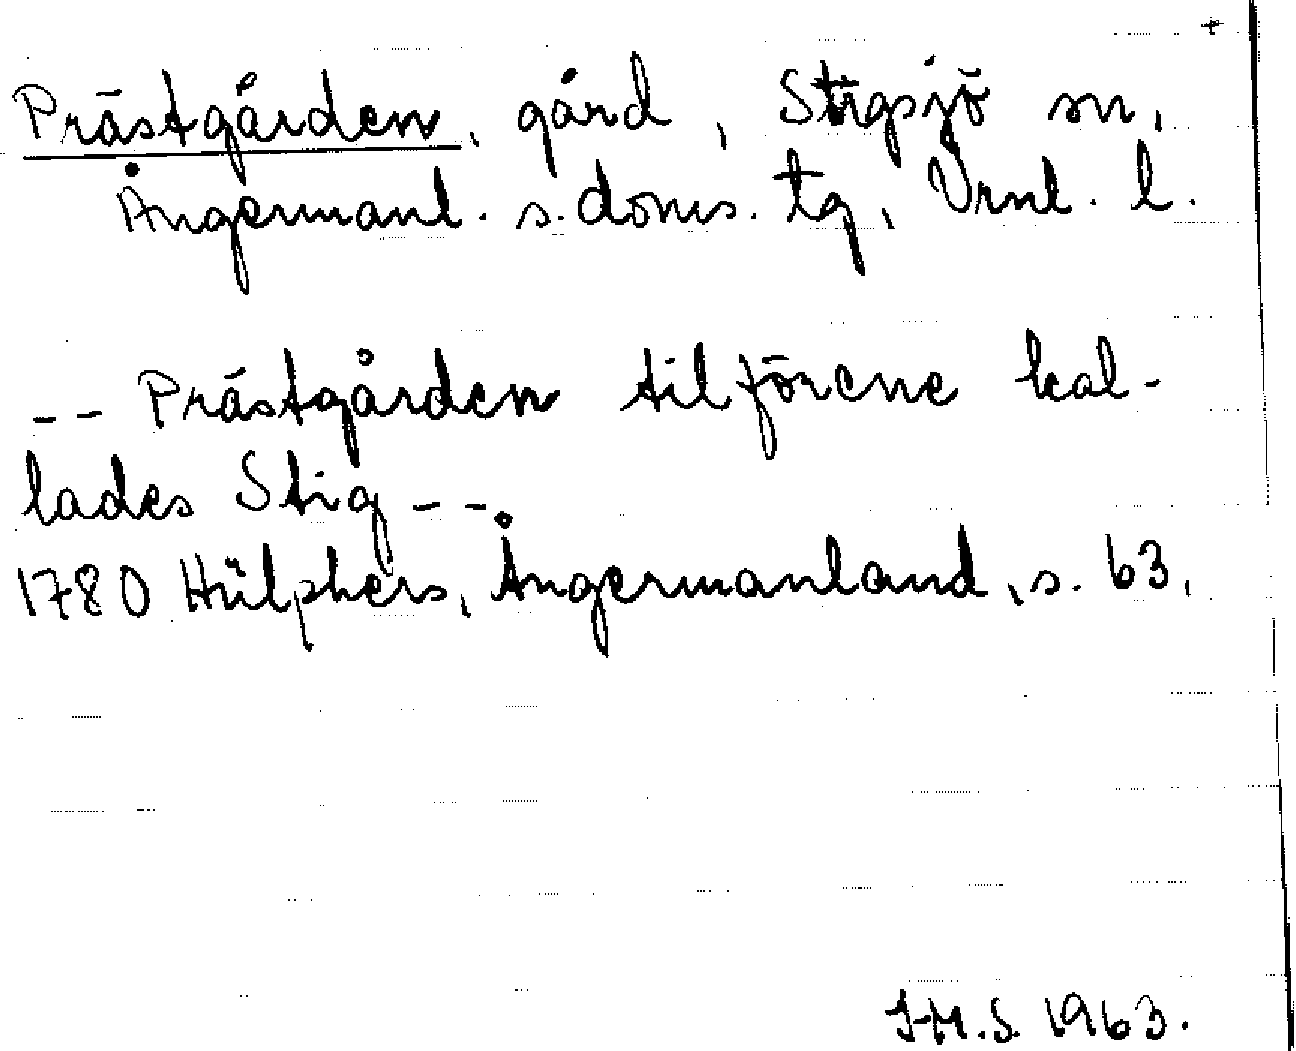 +
Prästgården, gård, Stigsjö sn,
Ångermanl. s. doms. tg, Vrnl. l.
-- Prästgården tilförene kal-
lades Stig --.
1780 Hülphers, Ångermanland, s. 63,
J-M.S. 1963.